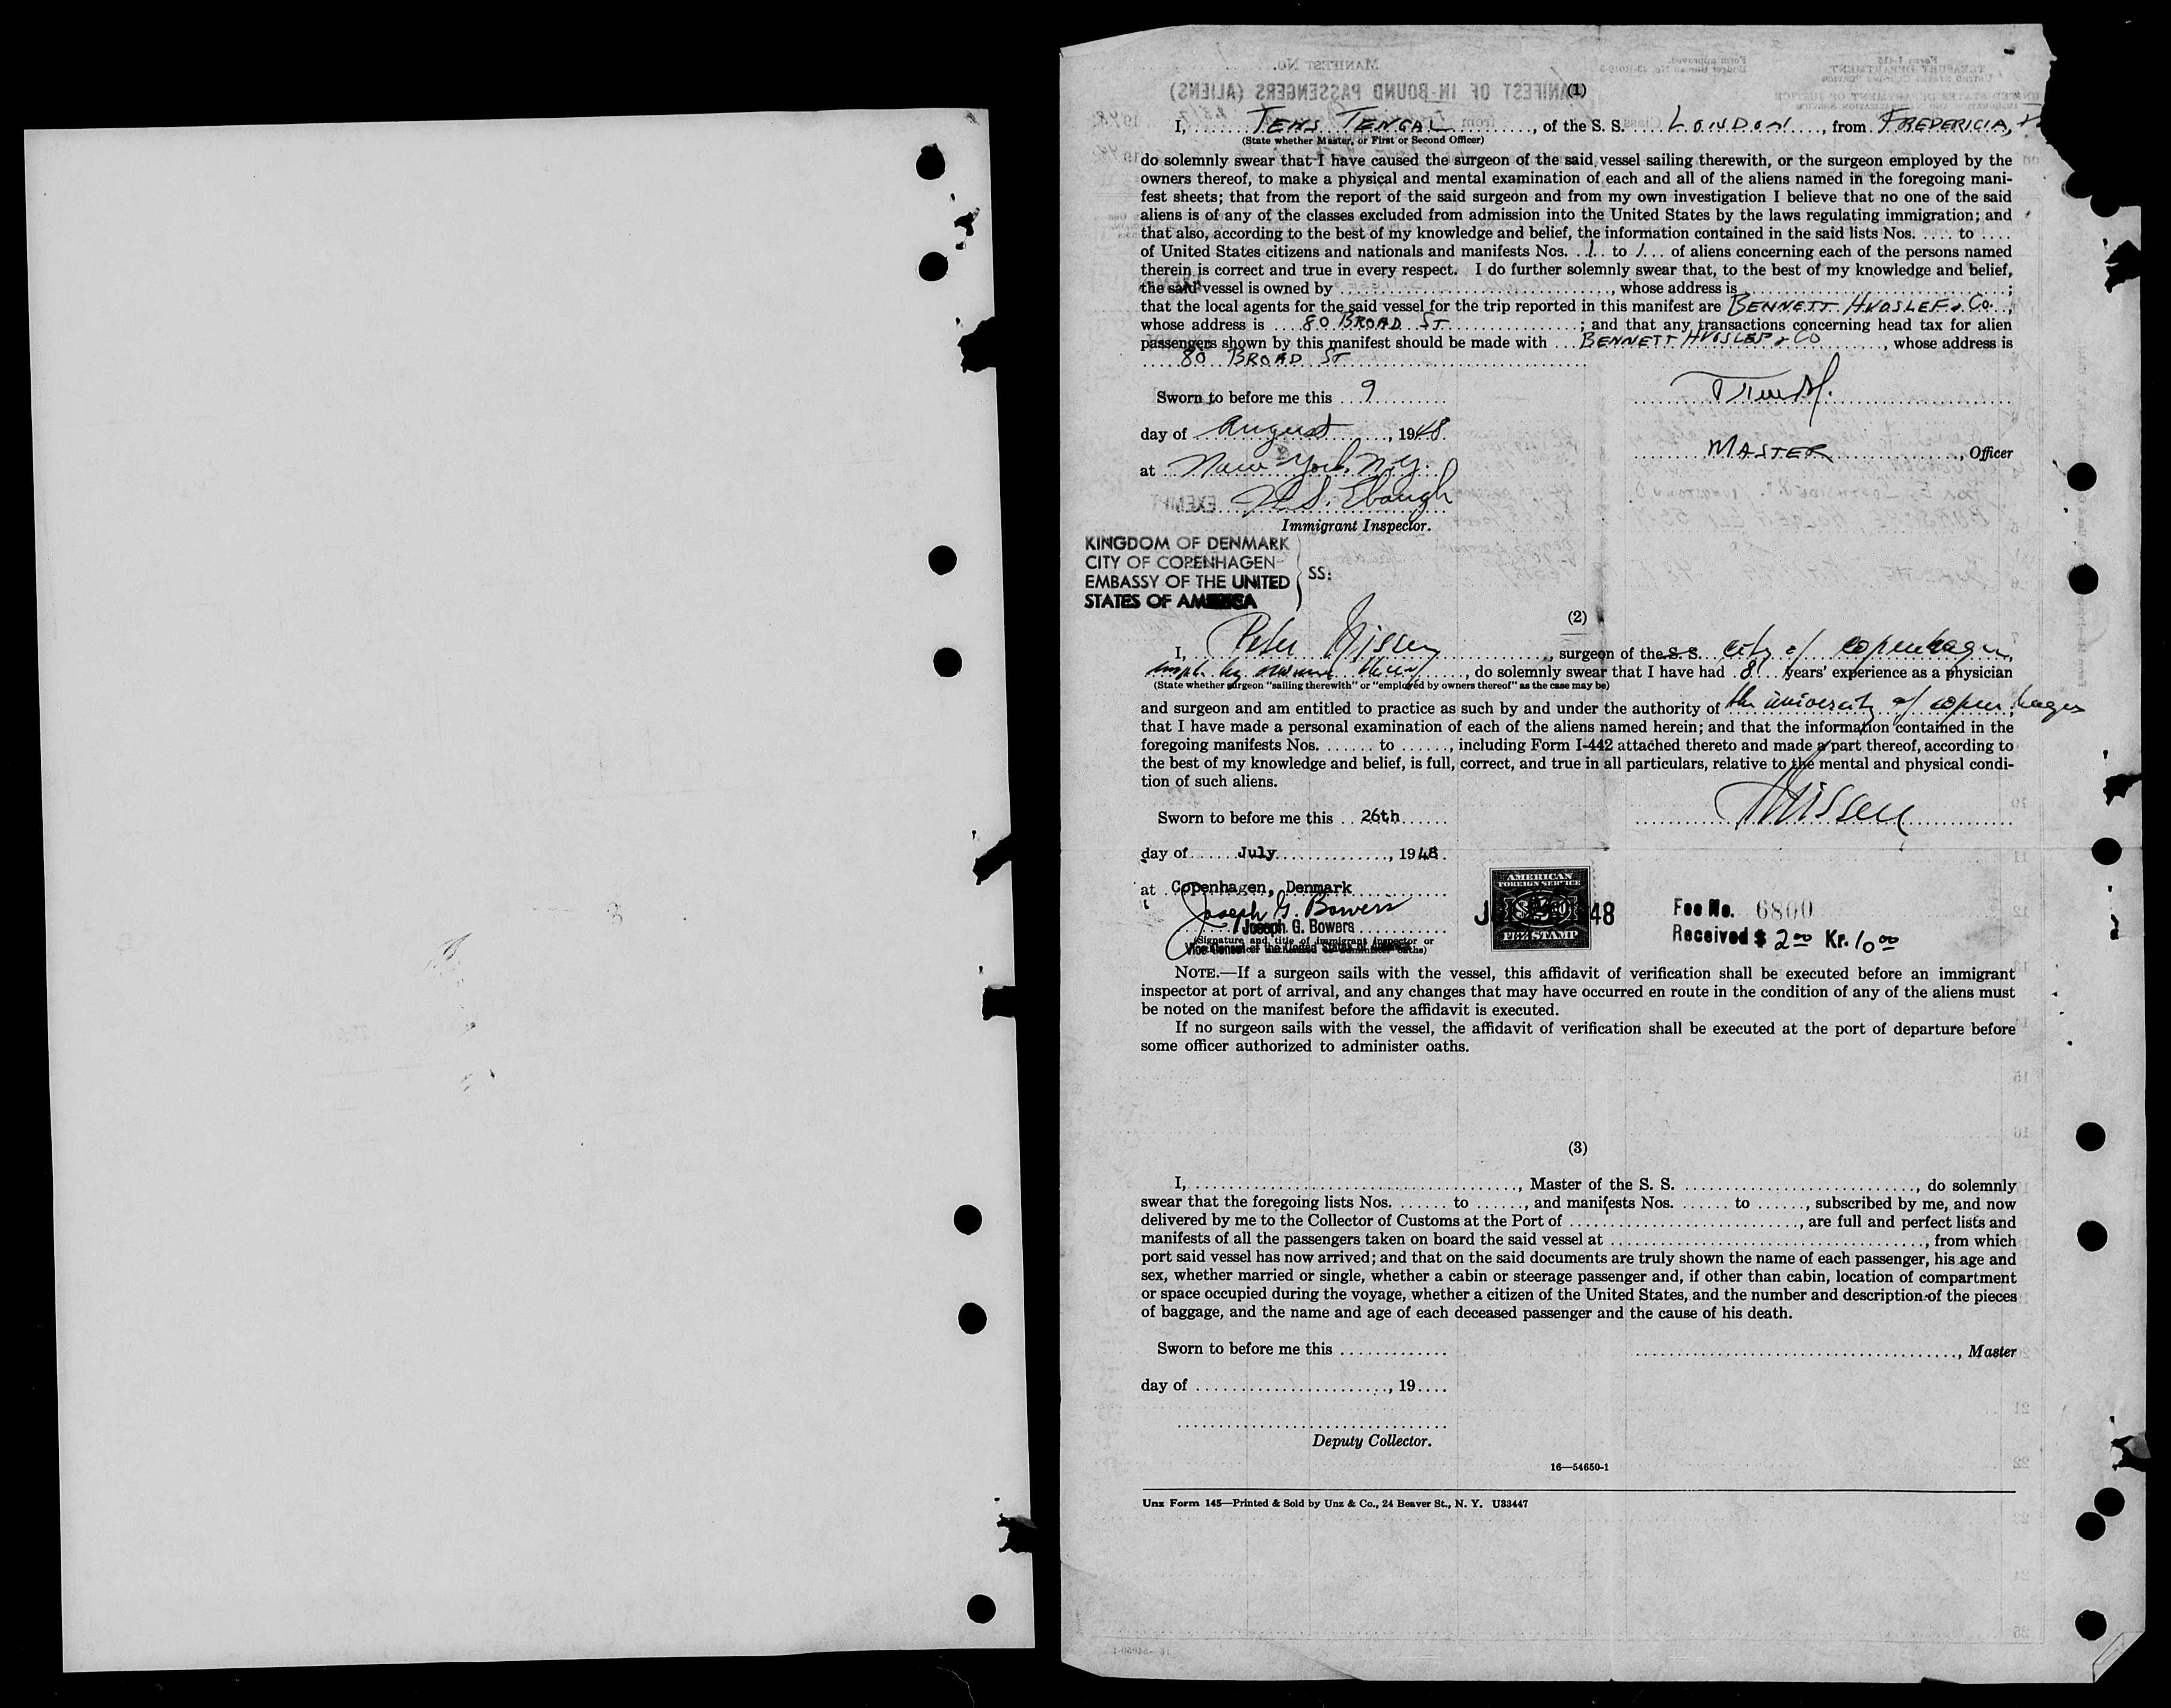 (1)
I, JENS JENGAL, of the S. S. LONDON, from FREDERICIA,
(State whether Master, or First or Second Officer)
do solemnly swear that I have caused the surgeon of the said vessel sailing therewith, or the surgeon employed by the
owners thereof, to make a physical and mental examination of each and all of the aliens named in the foregoing mani-
fest sheets; that from the report of the said surgeon and from my own investigation I believe that no one of the said
aliens is of any of the classes excluded from admission into the United States by the laws regulating immigration; and
that also, according to the best of my knowledge and belief, the information contained in the said lists Nos. .... to ....
of United States citizens and nationals and manifests Nos. 1 to 1 of aliens concerning each of the persons named
therein is correct and true in every respect. I do further solemnly swear that, to the best of my knowledge and belief,
the said vessel is owned by ...................., whose address is ....................;
that the local agents for the said vessel for the trip reported in this manifest are BENNETT HVOSLEF & Co.,
whose address is 80 BROAD ST; and that any transactions concerning head tax for alien
passengers shown by this manifest should be made with BENNETT HVOSLEF & CO, whose address is
80 BROAD ST
Sworn to before me this 9
day of August, 1948.
MASTER, Officer
at New York, N.Y.
Ebaugh
Immigrant Inspector.
KINGDOM OF DENMARK
CITY OF COPENHAGEN
EMBASSY OF THE UNITED
STATES OF AMERICA
SS:
(2)
I, Peter Nissen, surgeon of the S. S. city of copenhagen,
empl. by owners thereof, do solemnly swear that I have had 8 years' experience as a physician
(State whether surgeon "sailing therewith" or "employed by owners thereof" as the case may be)
and surgeon and am entitled to practice as such by and under the authority of the university of copenhagen;
that I have made a personal examination of each of the aliens named herein; and that the information contained in the
foregoing manifests Nos. ...... to ......, including Form I-442 attached thereto and made a part thereof, according to
the best of my knowledge and belief, is full, correct, and true in all particulars, relative to the mental and physical condi-
tion of such aliens.
Sworn to before me this 26th
Nissen
day of July, 1948.
at Copenhagen, Denmark
Joseph G. Bowers
Joseph G. Bowers
(Signature and title of immigrant inspector or
Vice Consul of the United States of America
AMERICAN
FOREIGN SERVICE
FEE STAMP
48
Fee No. 6800
Received $ 2.00 Kr. 10.00
NOTE.—If a surgeon sails with the vessel, this affidavit of verification shall be executed before an immigrant
inspector at port of arrival, and any changes that may have occurred en route in the condition of any of the aliens must
be noted on the manifest before the affidavit is executed.
If no surgeon sails with the vessel, the affidavit of verification shall be executed at the port of departure before
some officer authorized to administer oaths.
(3)
I, ...................., Master of the S. S. ...................., do solemnly
swear that the foregoing lists Nos. ...... to ......, and manifests Nos. ...... to ......, subscribed by me, and now
delivered by me to the Collector of Customs at the Port of ...................., are full and perfect lists and
manifests of all the passengers taken on board the said vessel at ...................., from which
port said vessel has now arrived; and that on the said documents are truly shown the name of each passenger, his age and
sex, whether married or single, whether a cabin or steerage passenger and, if other than cabin, location of compartment
or space occupied during the voyage, whether a citizen of the United States, and the number and description of the pieces
of baggage, and the name and age of each deceased passenger and the cause of his death.
Sworn to before me this .............
...................., Master
day of ...................., 19....
Deputy Collector.
16—54650-1
Unz Form 145—Printed & Sold by Unz & Co., 24 Beaver St., N. Y. U33447